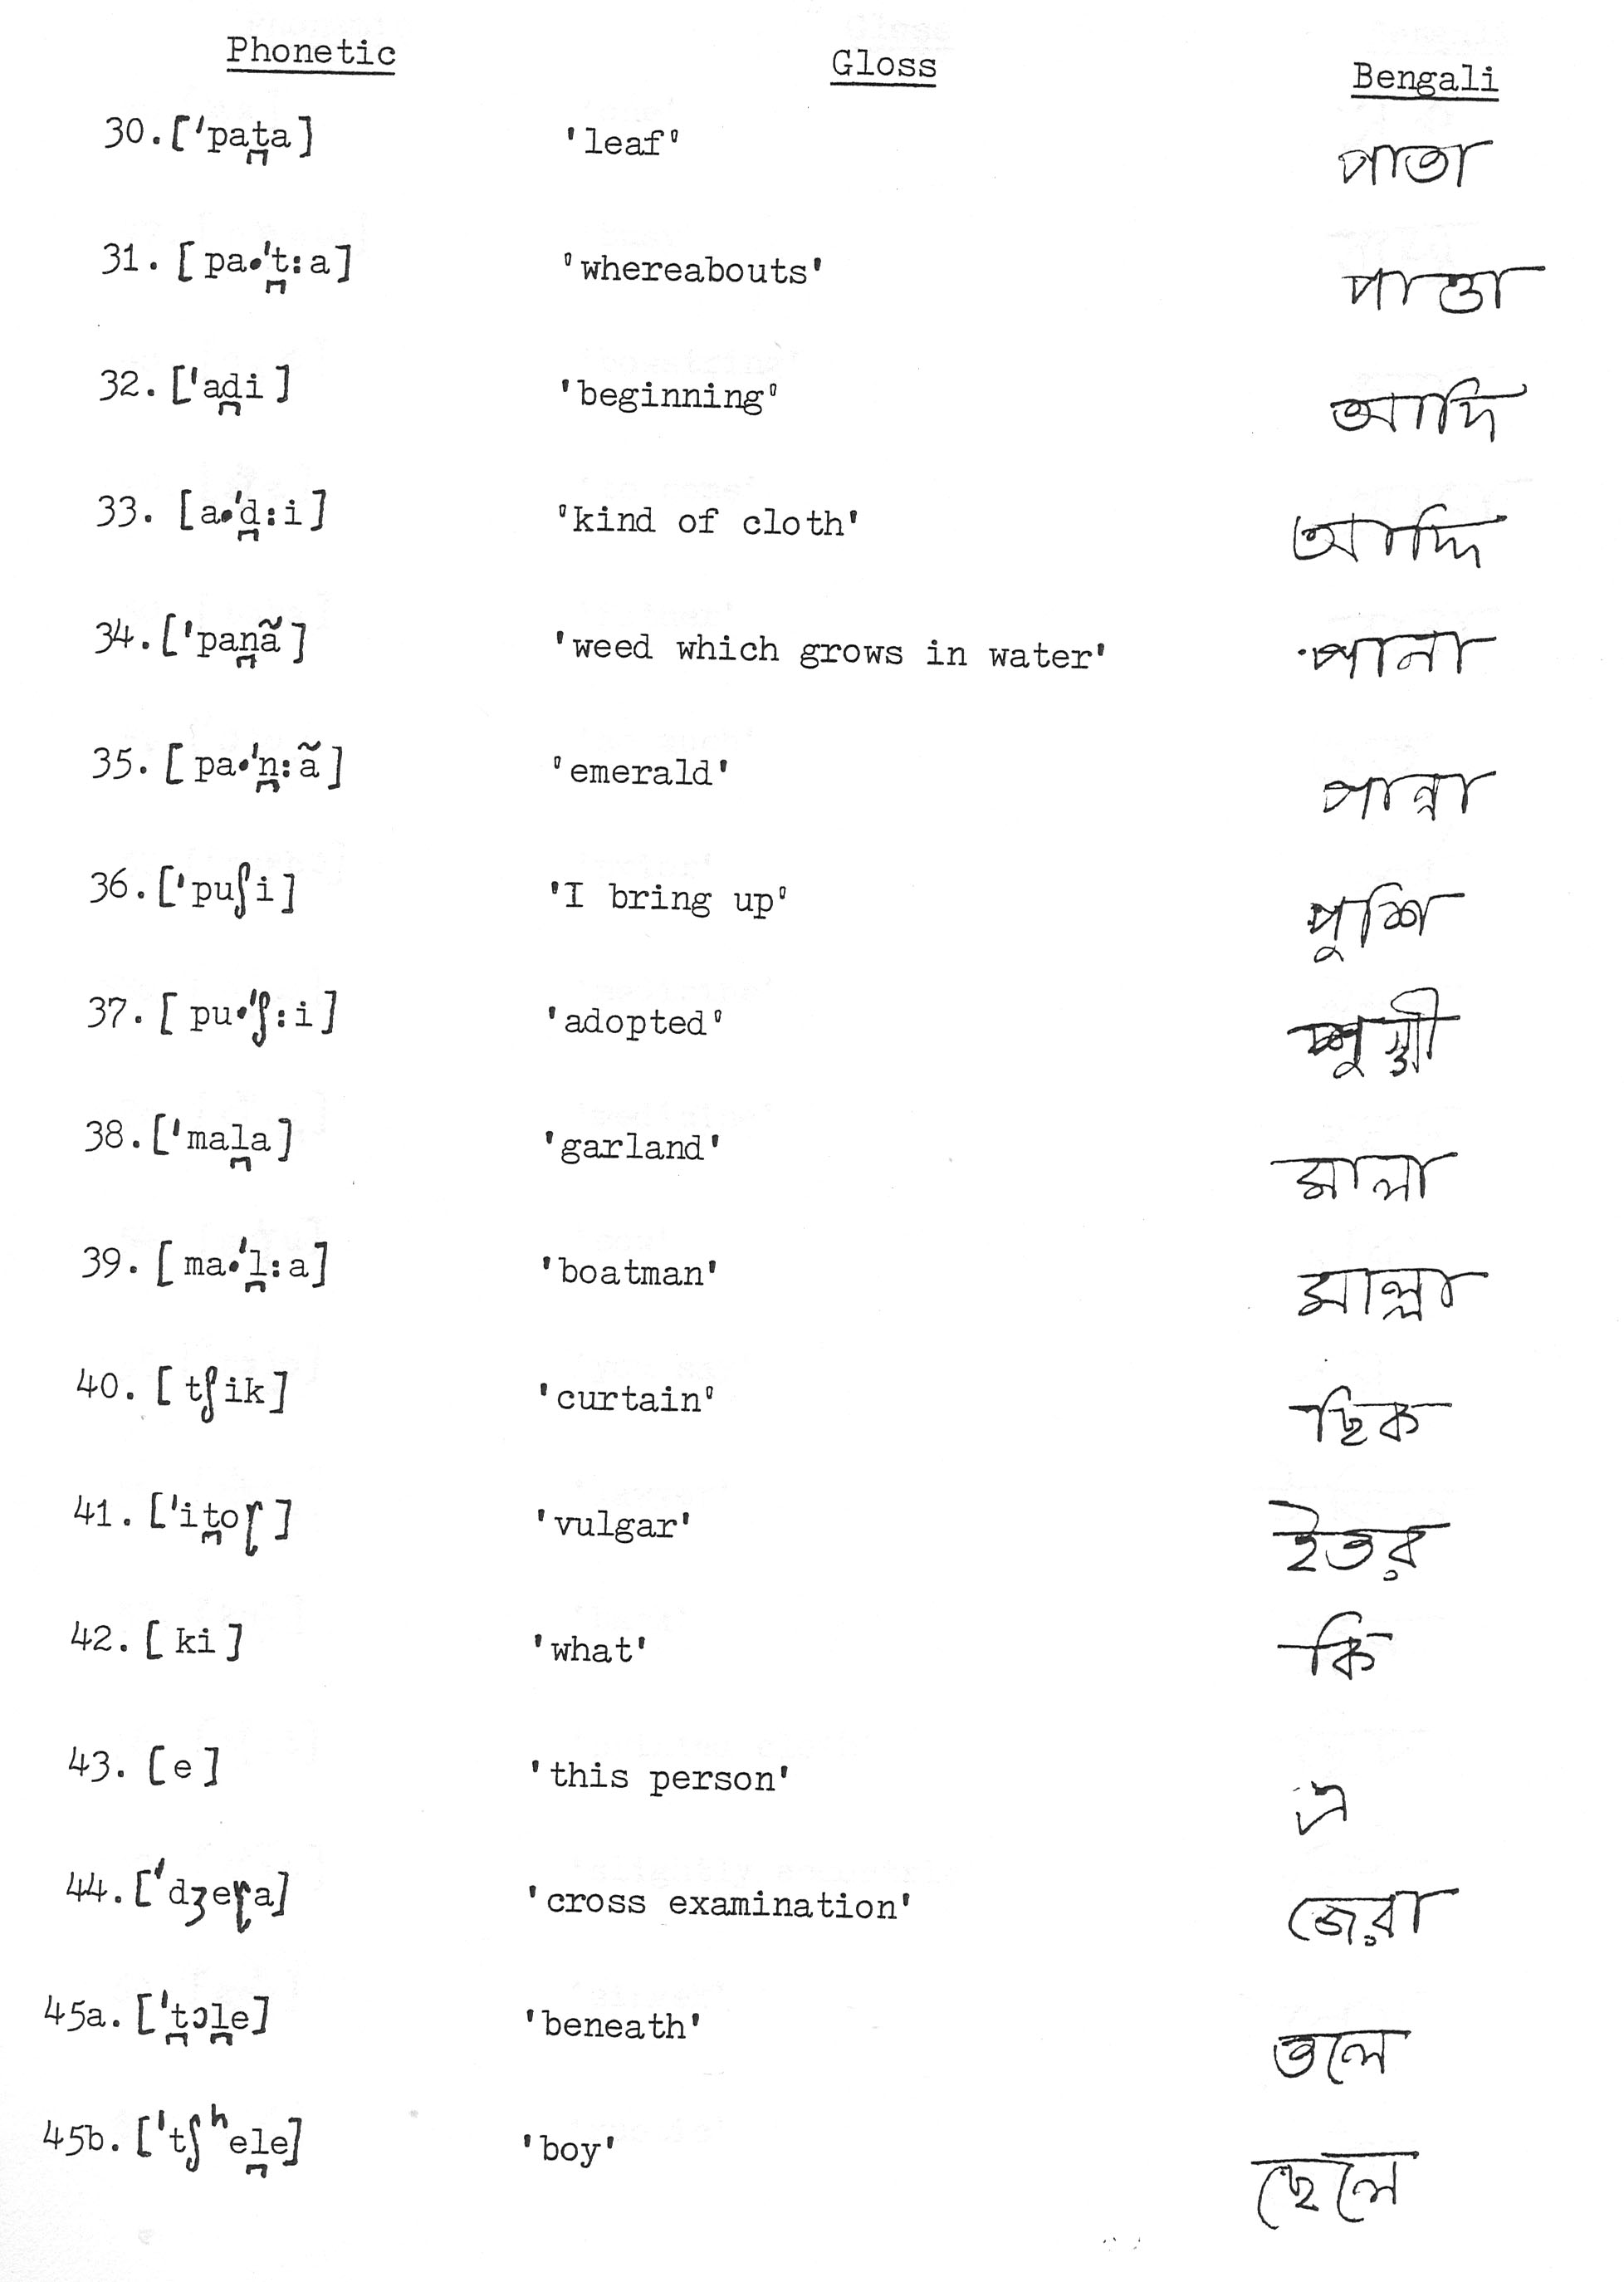 Phonetic Gloss Bengali
30. [ˈpat̻a] 'leaf' পাতা
31. [paˑˈt̻ːa] 'whereabouts' পাত্তা
32. [ˈad̻i] 'beginning' আদি
33. [aˑˈd̻ːi] 'kind of cloth' আদ্দি
34. [ˈpan̻ã] 'weed which grows in water' পানা
35. [paˑˈn̻ːã] 'emerald' পান্না
36. [ˈpuʃi] 'I bring up' পুশি
37. [puˑˈʃːi] 'adopted'
38. [ˈmal̻a] 'garland' মালা
39. [maˑˈl̻ːa] 'boatman' মাল্লা
40. [tʃik] 'curtain' ছিক
41. [ˈit̻oɽ] 'vulgar' ইতর
42. [ki] 'what' কি
43. [e] 'this person' এ
44. [ˈdʒeɽa] 'cross examination' জেরা
45a. [ˈt̻ɔl̻e] 'beneath' তলে
45b. [ˈtʃʰel̻e] 'boy' ছেলে